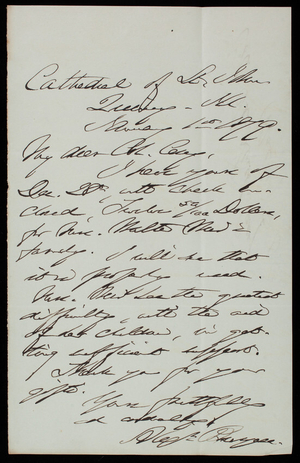 Cathedral of St. John
Quincy - Ill.
January 1st 1879.
My dear Mr. Casey,
I have yours of
Dec. 28th, with check en-
closed, Twelve 50/100 Dollars,
for Mrs. Walter
family. I will see that
it is properly used.
Mrs. has the greatest
difficulty, with the aid
of her children, in get-
ting sufficient support.
Thank you for your
gift.
Yours faithfully
Alex. Burgess